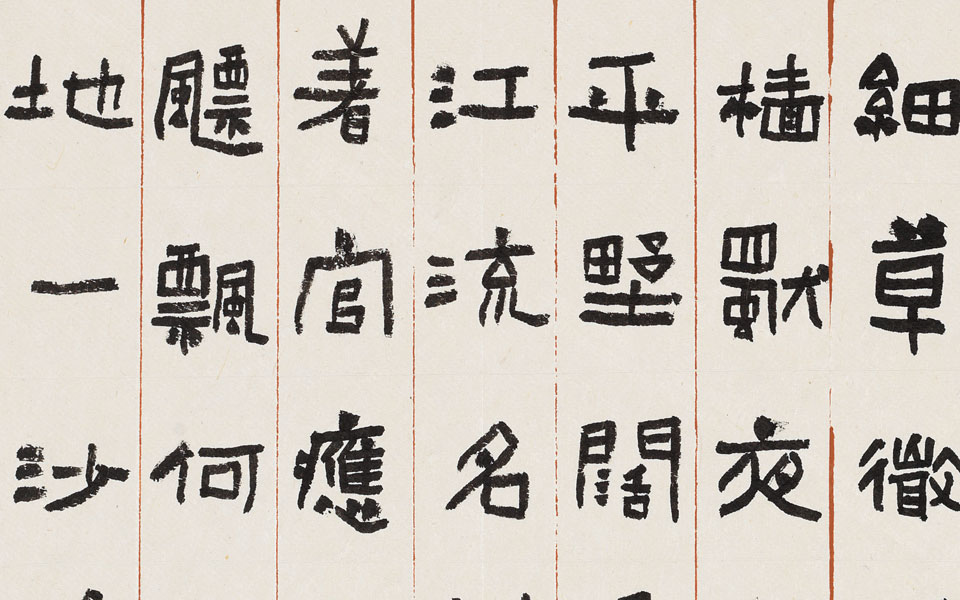 細草微
檣獨夜
平野闊
江流名
著官應
飃飄何
地一沙